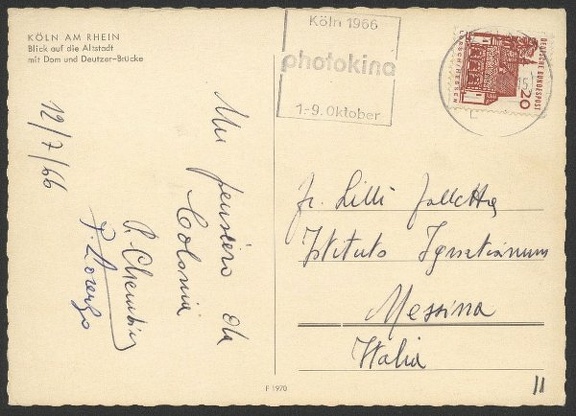 KÖLN AM RHEIN
Blick auf die Altstadt
mit Dom und Deutzer-Brücke
Köln 1966
photokina
1.-9. Oktober
DEUTSCHE BUNDESPOST
20
12/7/66
Un pensiero da
Colonia
P. Lorenzo
Fr. Lilli
Istituto Ignatianum
Messina
Italia
F 1970
11